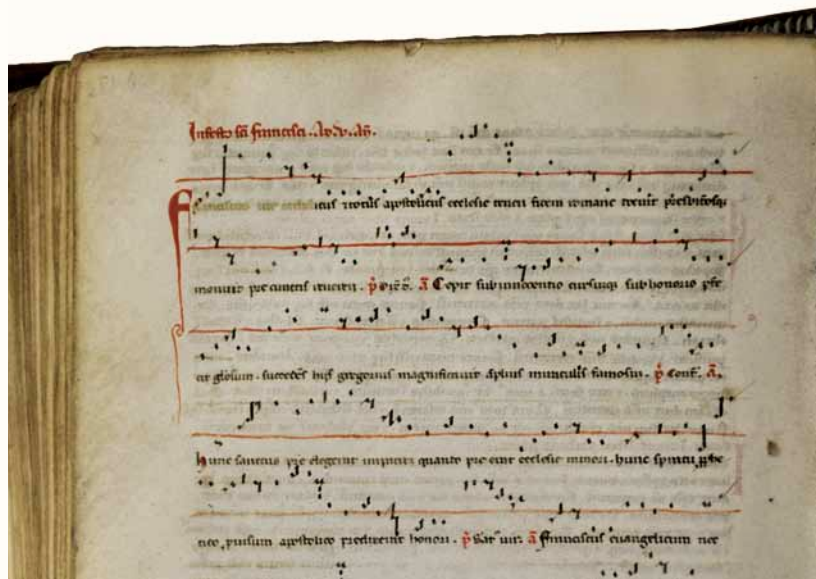 In festo sci francisci. ad. v. an.
Franciscus vir catholicus et totus apostolicus ecclesie teneri fidem romane docuit presbiterosque
monuit pre cunctis revereri. p̄ dix̄. ā Cepit sub innocentio cursumque sub honorio perfe
cit gloriosum. succedens hijs gregorius magnificavit amplius miraculis famosum. p̄ Conf. ā.
hunc sanctus pre elegerat in patrem quando pre erat ecclesie minori. hunc spiritu prophe
tico, provisum apostolico predixerat honori. ā franciscus evangelicum nec